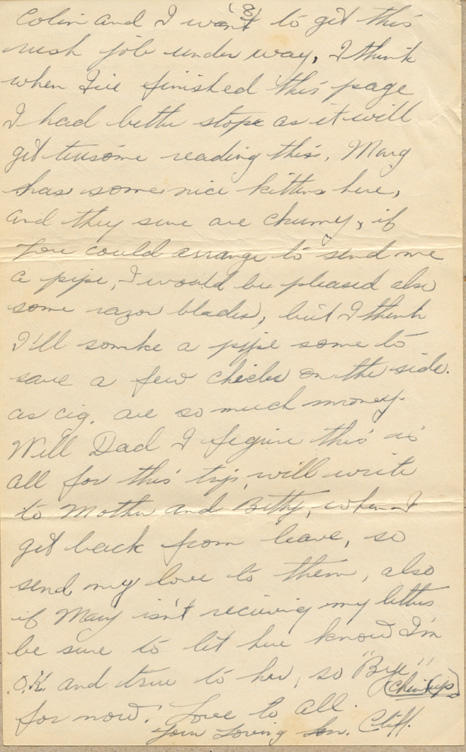 (8)
Colin and I want to get this
rush job under way, I think
when I've finished this page
I had better stope as it will
get tiresome reading this. Mary
has some nice kittens here,
and they sure are chumy, if
you could arrange to send me
a pipe, I would be pleased also
some razor blades, but I think
I'll somke a pipe some to
save a few chicks on the side.
as cig. are so much money.
Will Dad I figure this is
all for this trip, will write
to Mother and Betty, when I
get back from leave, so
send my love to them, also
if Mary isn't recieving my letters
be sure to let her know I'm
O.K. and true to her, so "Bye"
(Chin up)
for now. Love to all.
Your Loving Son. Cliff.